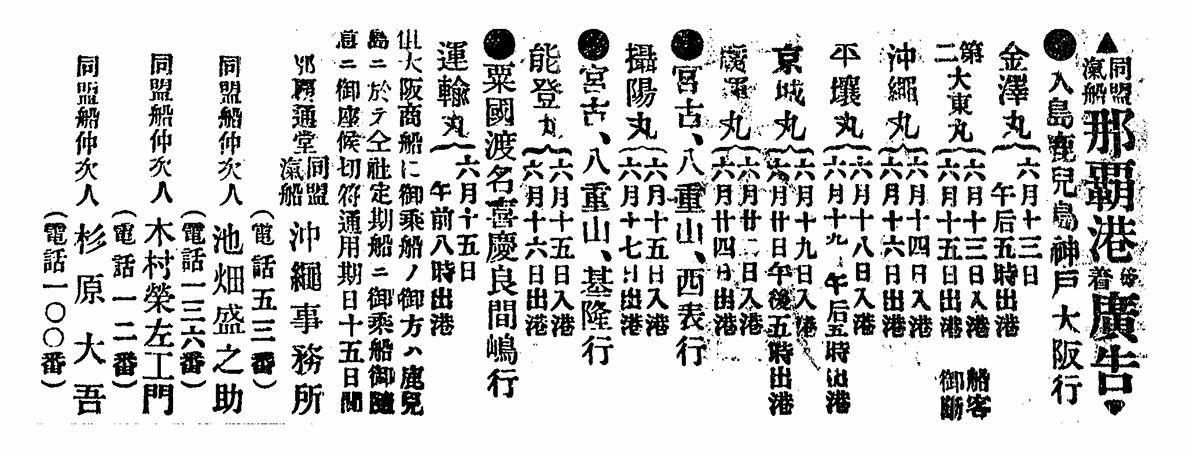 ▲同盟滊船那覇港發着廣告▼
●大島鹿兒島神戸大阪行
金澤丸 六月十三日午后五時出港
第二大東丸 六月十三日入港 六月十五日出港 船客御斷
沖繩丸 六月十四日入港 六月十六日出港
平壤丸 六月十八日入港 六月十九日午后五時出港
京城丸 六月十九日入港 六月廿日午後五時出港
丸 六月廿二日入港 六月廿四日出港
●宮古、八重山、西表行
攝陽丸 六月十五日入港 六月十七日出港
●宮古、八重山、基隆行
能登丸 六月十五日入港 六月十六日出港
●粟國渡名喜慶良間嶋行
運輸丸 六月十五日午前八時出港
但大阪商船に御乘船ノ御方ハ鹿兒
島ニ於テ仝社定期船ニ御乘船御隨
意ニ御座候切符通用期日十五日間
那覇通堂 同盟滊船 沖繩事務所
(電話五三番)
同盟船仲次人 池畑盛之助
(電話一三六番)
同盟船仲次人 木村榮左工門
(電話一二番)
同盟船仲次人 杉原大吾
(電話一〇〇番)